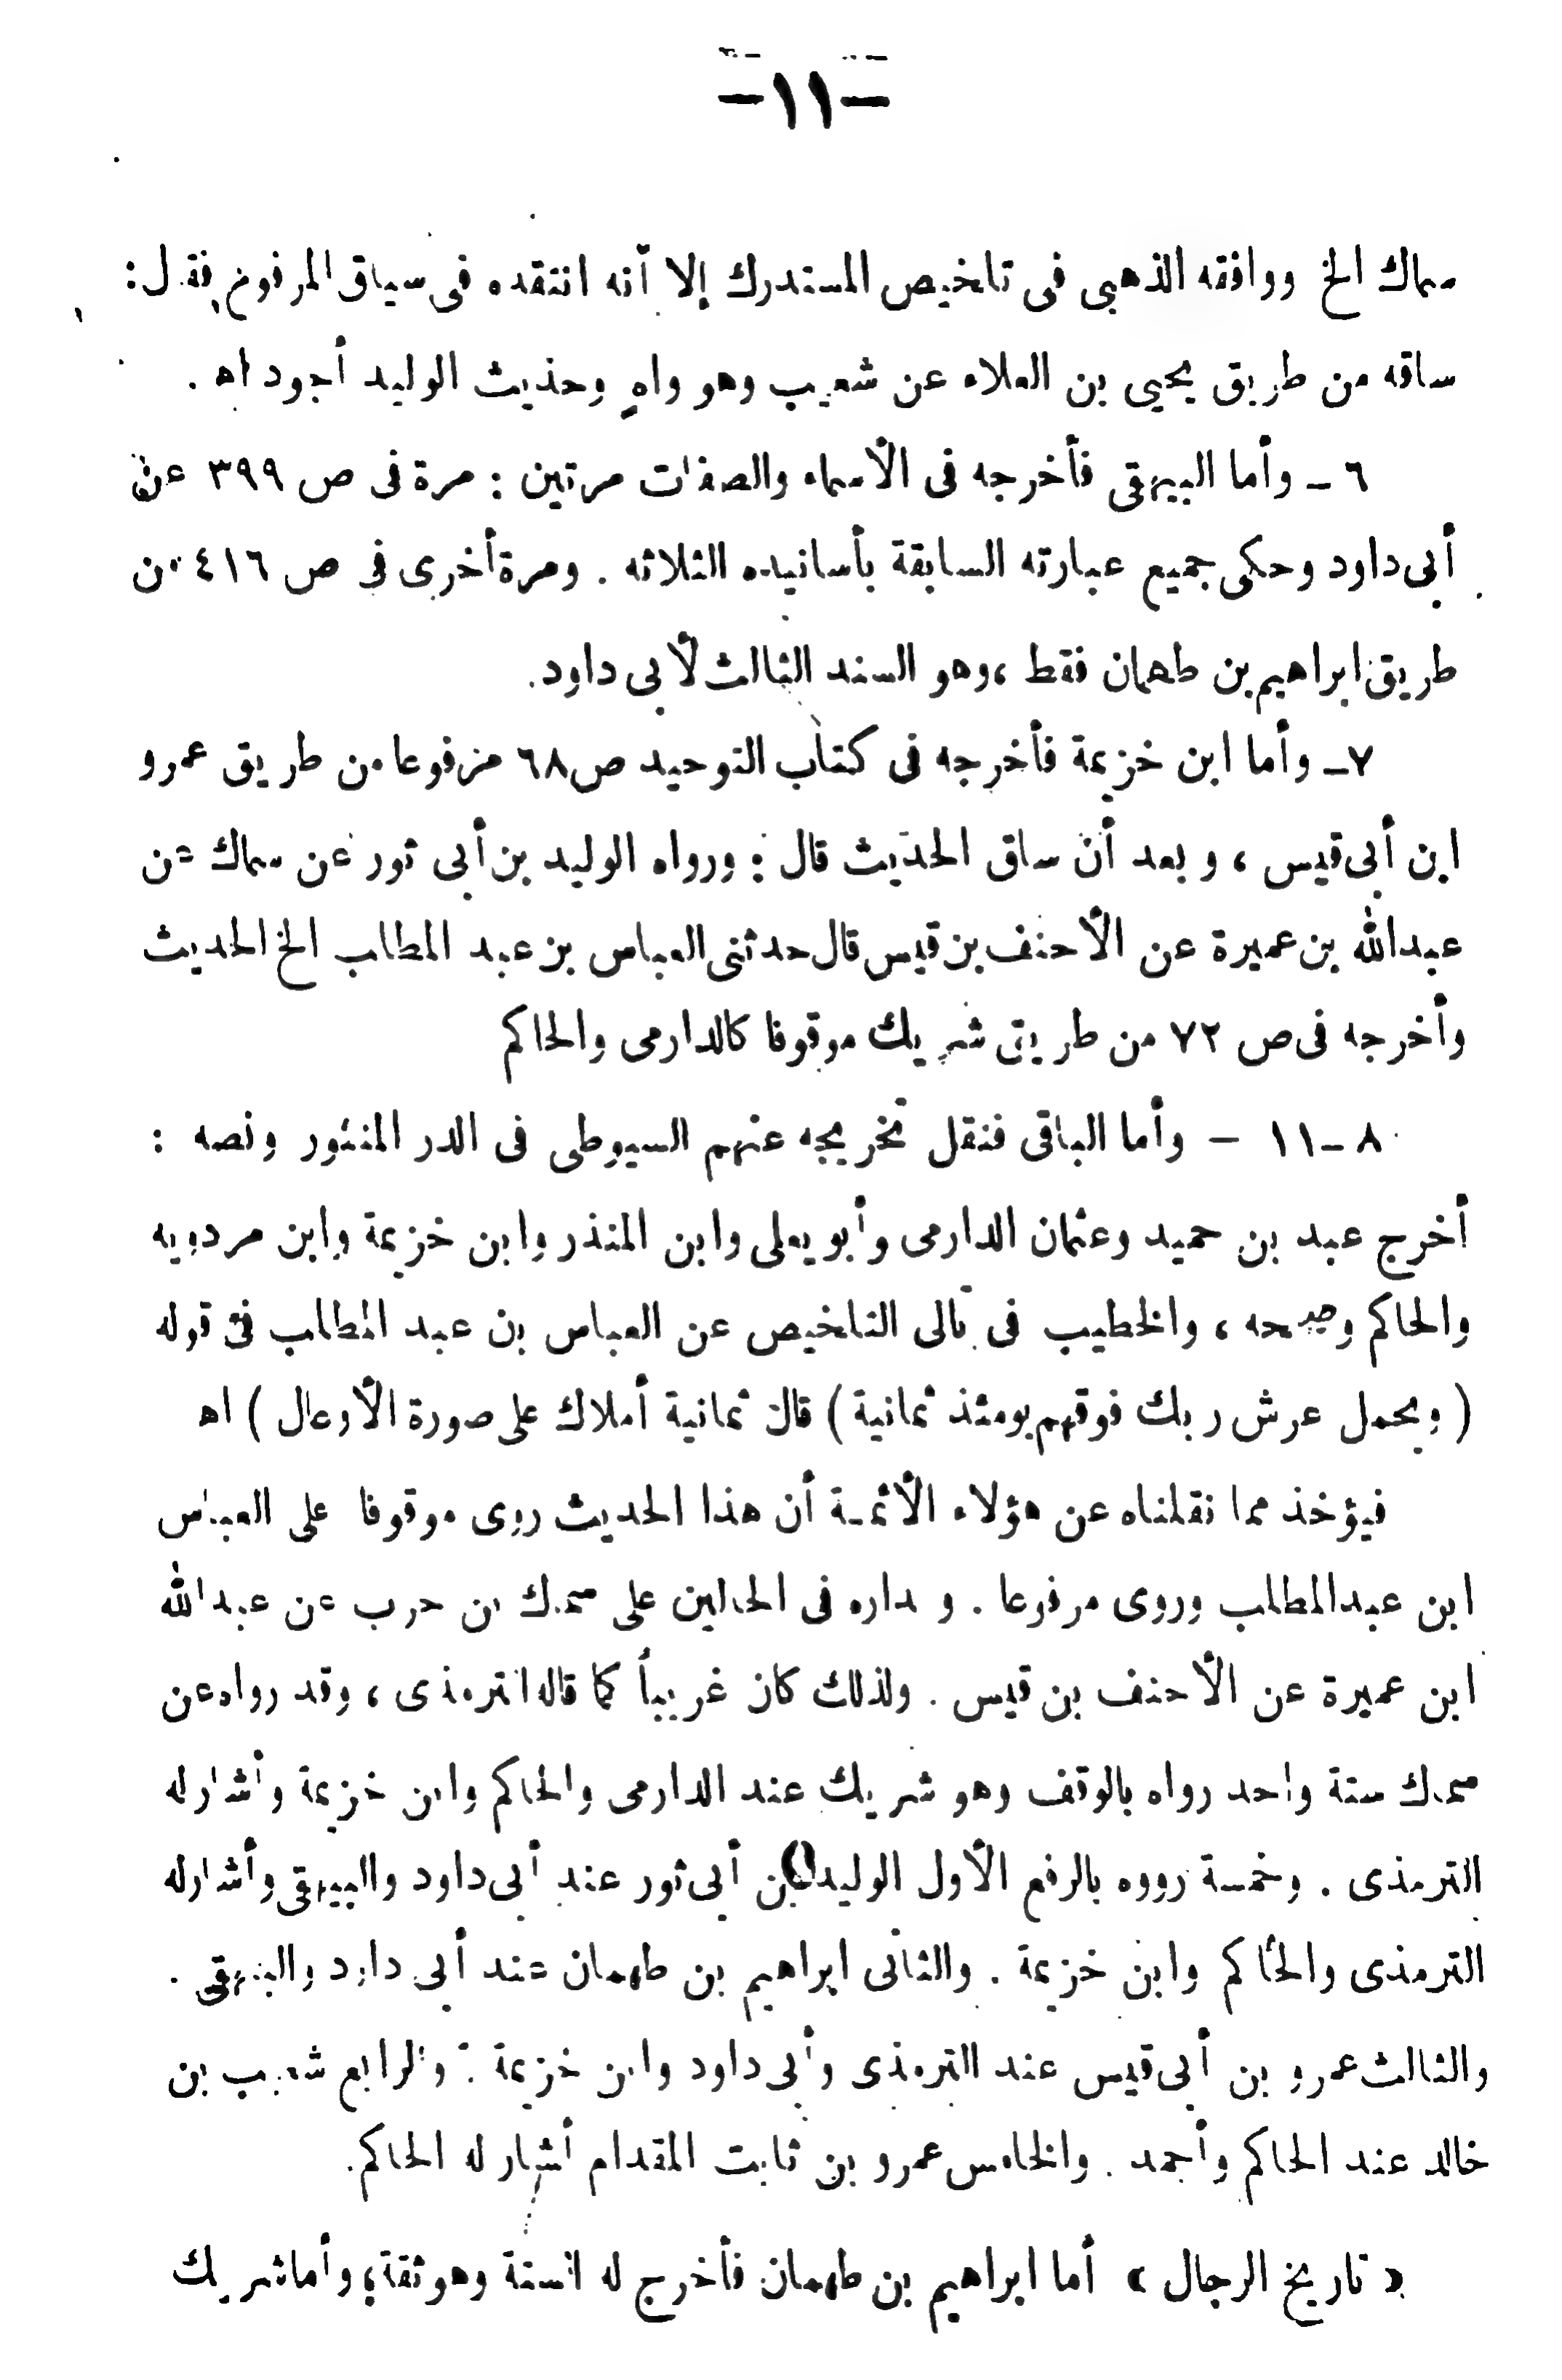 -١١-
سماك الخ ووافقه الذهبى فى تلخيص المستدرك إلا أنه انتقده فى سياق المرفوع فقال:
ساقه من طريق يحيى بن العلاء عن شعيب وهو واهٍ وحديث الوليد أجود اه .
٦ ـ وأما البيهقى فأخرجه فى الأسماء والصفات مرتين : مرة فى ص ٣٩٩ عن
أبى داود وحكى جميع عبارته السابقة بأسانيده الثلاثه . ومرة أخرى فى ص ٤١٦ من
طريق ابراهيم بن طهمان فقط ، وهو السند الثالث لأبى داود.
٧ـ وأما ابن خزيمة فأخرجه فى كتاب التوحيد ص٦٨ مرفوعا من طريق عمرو
ابن أبى قيس ، وبعد أن ساق الحديث قال : ورواه الوليد بن أبى ثور عن سماك عن
عبدالله بن عميرة عن الأحنف بن قيس قال حدثنى العباس بن عبد المطلب الخ الحديث
وأخرجه فى ص ٧٢ من طريق شريك موقوفا كالدارمى والحاكم
٨ ـ ١١ – وأما الباقى فننقل تخريجه عنهم السيوطى فى الدر المنثور ونصه :
أخرج عبد بن حميد وعثمان الدارمى وأبو يعلى وابن المنذر وابن خزيمة وابن مردويه
والحاكم وصححه ، والخطيب فى تالى التلخيص عن العباس بن عبد المطلب فى قوله
( ويحمل عرش ربك فوقهم يومئذ ثمانية ) قال ثمانية أملاك على صورة الأوعال ) اه
فيؤخذ مما نقلناه عن هؤلاء الأئمة أن هذا الحديث روى موقوفا على العباس
ابن عبدالمطلب وروى مرفوعا . ومداره فى الحالين على سماك بن حرب عن عبدالله
ابن عميرة عن الأحنف بن قيس . ولذلك كان غريباً كما قاله الترمذى ، وقد رواه عن
سماك ستة واحد رواه بالوقف وهو شريك عند الدارمى والحاكم وابن خزيمة وأشار له
الترمذى . وخمسة رووه بالرفع الأول الوليد بن أبى ثور عند أبى داود والبيهقى وأشار له
الترمذى والحاكم وابن خزيمة . والثانى ابراهيم بن طهمان عند أبى داود والبيهقى .
والثالث عمرو بن أبى قيس عند الترمذى وأبى داود وابن خزيمة . والرابع شعيب بن
خالد عند الحاكم وأحمد . والخامس عمرو بن ثابت المقدام أشار له الحاكم.
« تاريخ الرجال » أما ابراهيم بن طهمان فأخرج له الستة وهو ثقة ، وأما شريك